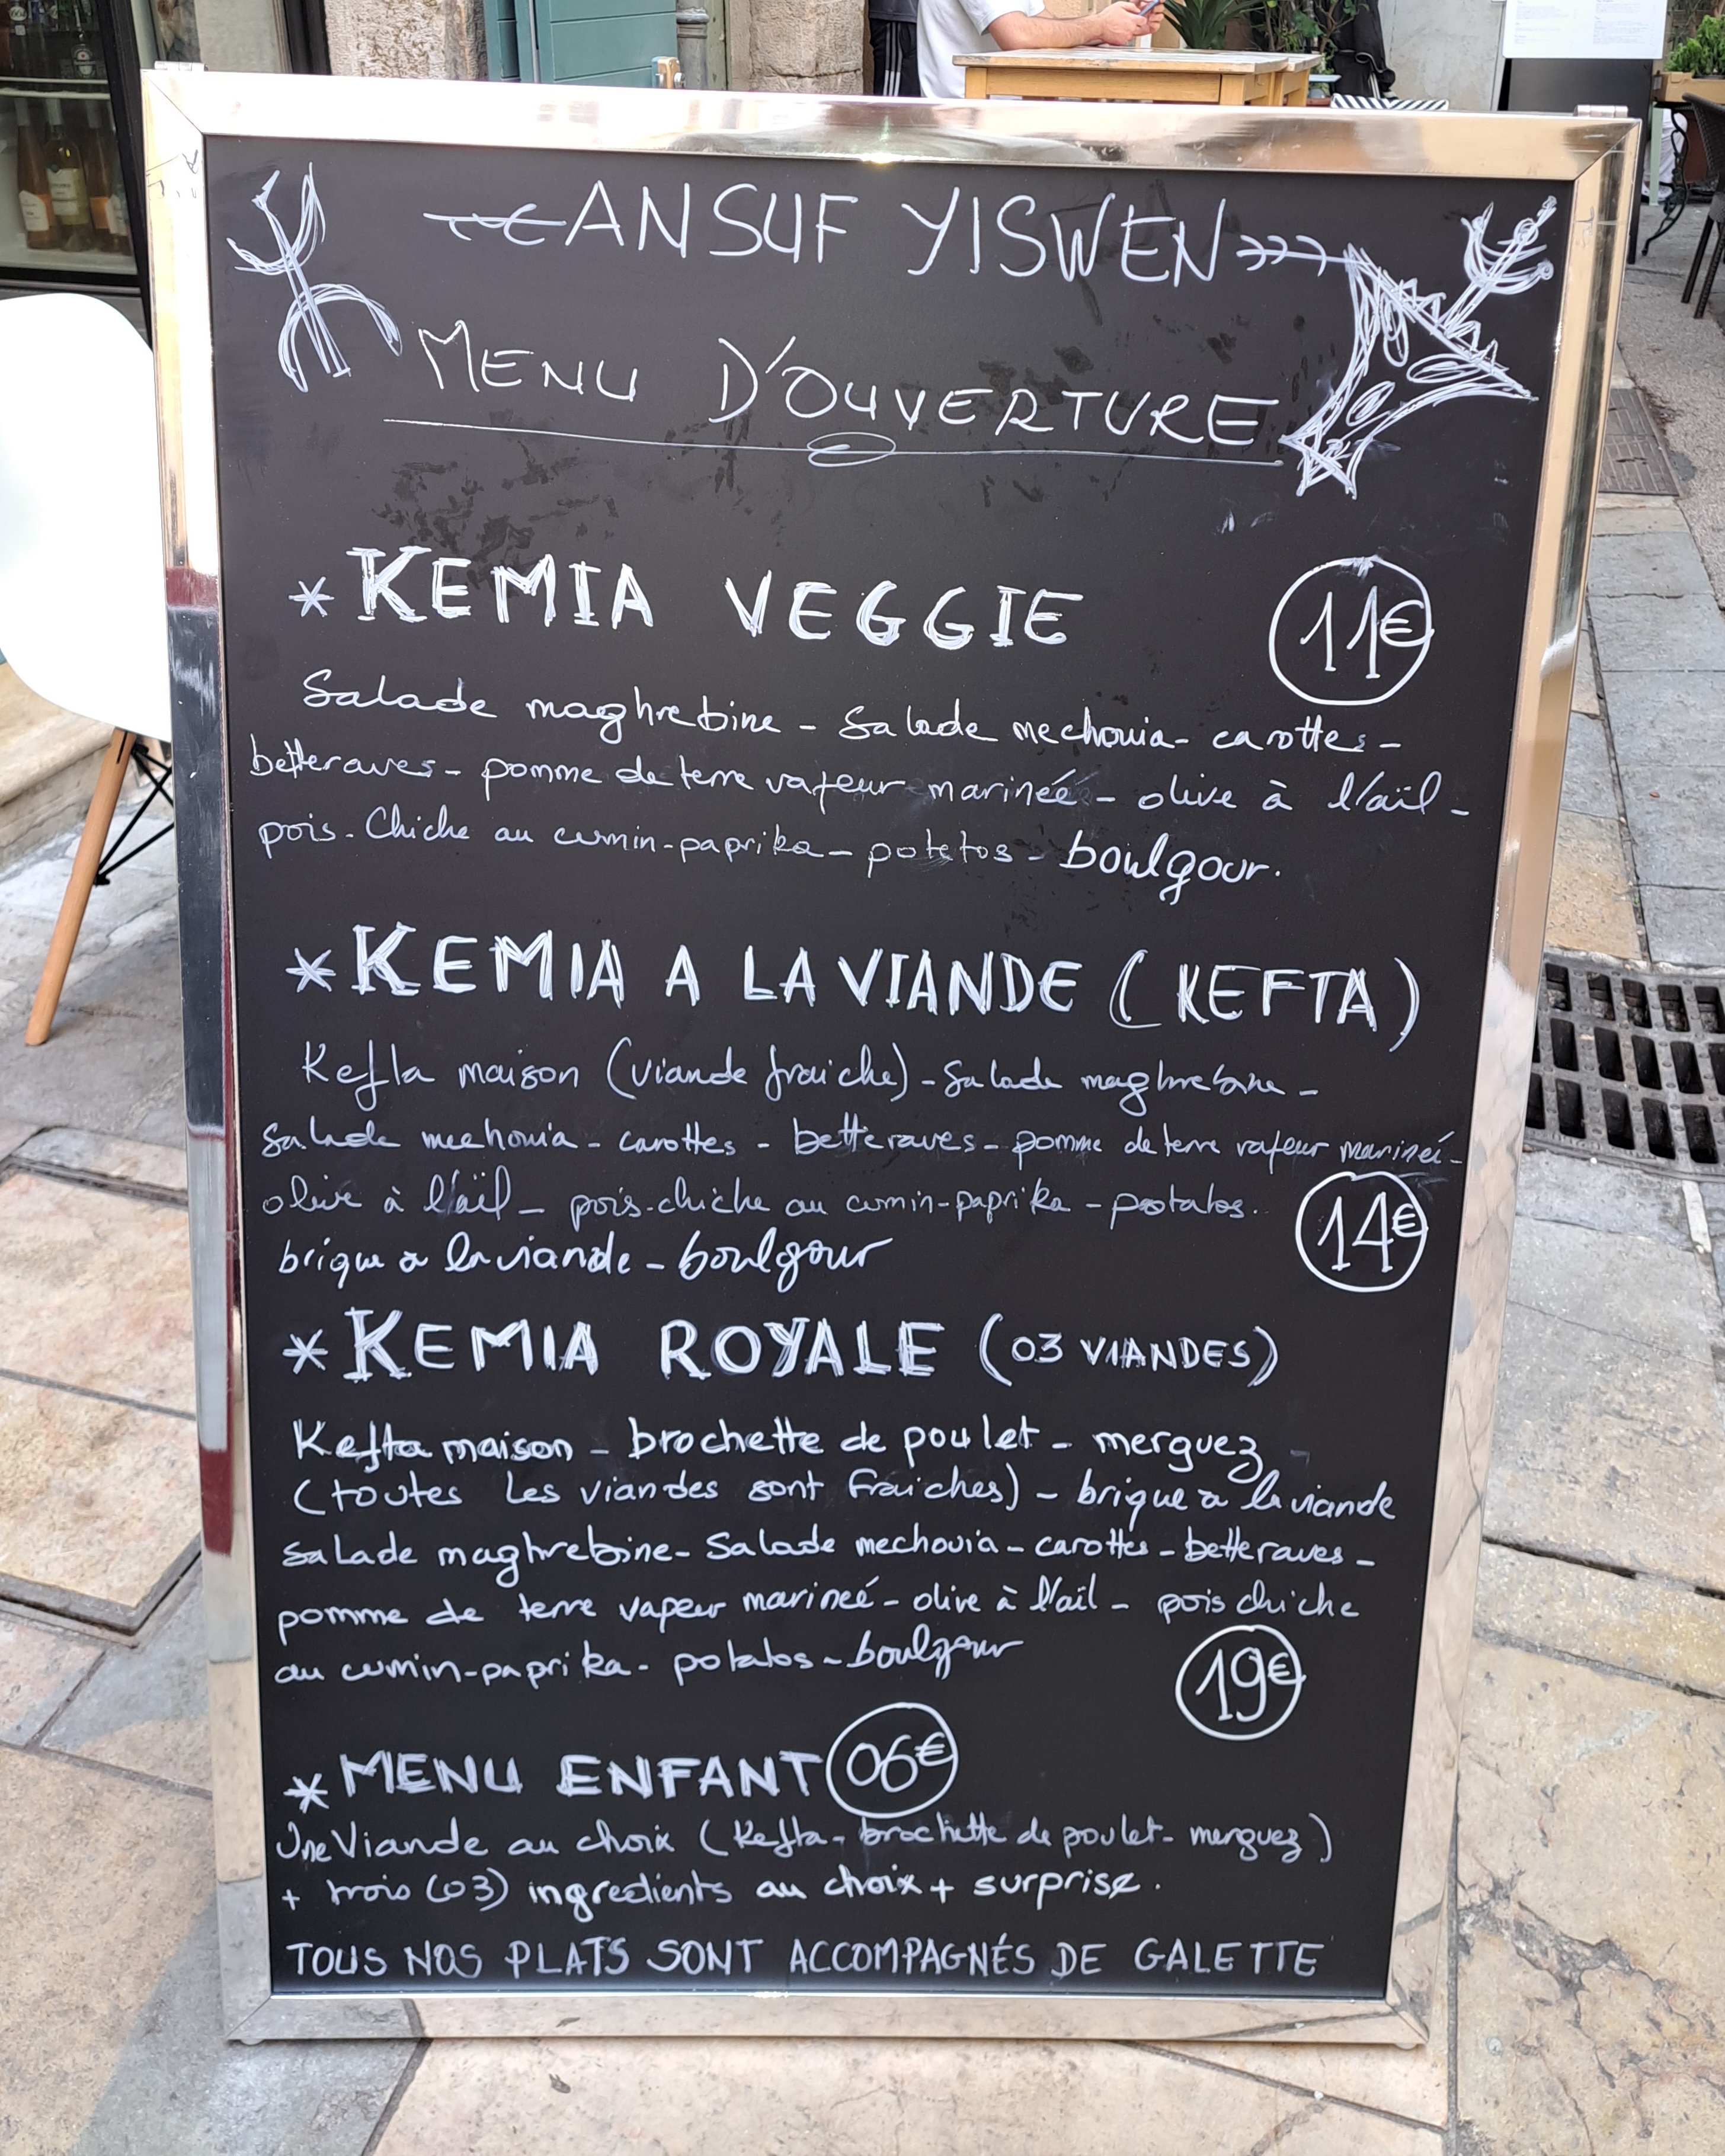 ANSUF YISWEN
MENU D'OUVERTURE
* KEMIA VEGGIE 11€
Salade maghrebine - Salade mechouia - carottes -
betteraves - pomme de terre vapeur marineé - olive à l'aïl -
pois-chiche au cumin-paprika - potetos - boulgour.
* KEMIA A LA VIANDE (KEFTA)
Kefta maison (viande fraiche) - Salade maghrebine -
Salade mechouia - carottes - betteraves - pomme de terre vapeur marineé -
olive à l'aïl - pois-chiche au cumin-paprika - potatos. 14€
brique a la viande - boulgour
* KEMIA ROYALE (03 VIANDES)
Kefta maison - brochette de poulet - merguez -
(toutes les viandes sont fraiches) - brique a la viande
salade maghrebine - Salade mechouia - carottes - betteraves -
pomme de terre vapeur marineé - olive à l'aïl - pois chiche
au cumin-paprika - potatos - boulgour 19€
* MENU ENFANT 06€
Une Viande au choix (Kefta - brochette de poulet - merguez)
+ trois (03) ingredients au choix + surprise.
TOUS NOS PLATS SONT ACCOMPAGNÉS DE GALETTE